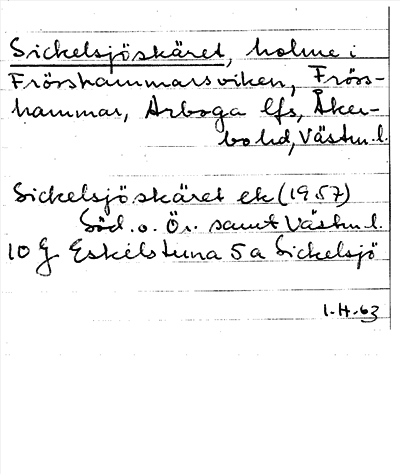 Sickelsjöskäret, holme i
Frösshammarsviken, Fröss-
hammar, Arboga lfs, Åker-
bo hd, Västm. l.
Sickelsjöskäret ek (1957)
Söd. o. Ör. samt Västm. l.
10 G Eskilstuna 5 a Sickelsjö
1-H-63